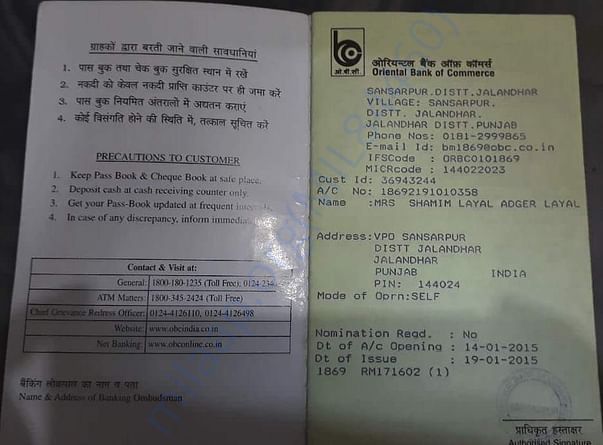 ग्राहकों द्वारा बरती जाने वाली सावधानियां
1. पास बुक तथा चेक बुक सुरक्षित स्थान में रखें
2. नकदी को केवल नकदी प्राप्ति काउंटर पर ही जमा करें
3. पास बुक नियमित अंतरालों में अद्यतन कराएं
4. कोई विसंगति होने की स्थिति में, तत्काल सूचित करें
PRECAUTIONS TO CUSTOMER
1. Keep Pass Book & Cheque Book at safe place.
2. Deposit cash at cash receiving counter only.
3. Get your Pass-Book updated at frequent
4. In case of any discrepancy, inform
Contact & Visit at:
General: 1800-180-1235 (Toll Free); 0124-234
ATM Matters: 1800-345-2424 (Toll Free)
Chief Grievance Redress Officer: 0124-4126110, 0124-4126498
Website: www.obcindia.co.in
Net Banking: www.obconline.co.in
बैंकिंग लोकपाल का नाम व पता
Name & Address of Banking Ombudsman
ओ.बी.सी.
ओरियन्टल बैंक ऑफ़ कॉमर्स
Oriental Bank of Commerce
SANSARPUR.DISTT.JALANDHAR
VILLAGE: SANSARPUR.
DISTT. JALANDHAR.
JALANDHAR DISTT.PUNJAB
Phone Nos: 0181-2999865
E-mail Id: bm1869@obc.co.in
IFSCode : ORBC0101869
MICRcode : 144022023
Cust Id: 36943244
A/C No: 18692191010358
Name :MRS SHAMIM LAYAL ADGER LAYAL
Address:VPO SANSARPUR
DISTT JALANDHAR
JALANDHAR
PUNJAB INDIA
PIN: 144024
Mode of Oprn:SELF
Nomination Regd. : No
Dt of A/c Opening : 14-01-2015
Dt of Issue : 19-01-2015
1869 RM171602 (1)
प्राधिकृत हस्ताक्षर
Authorised Signature